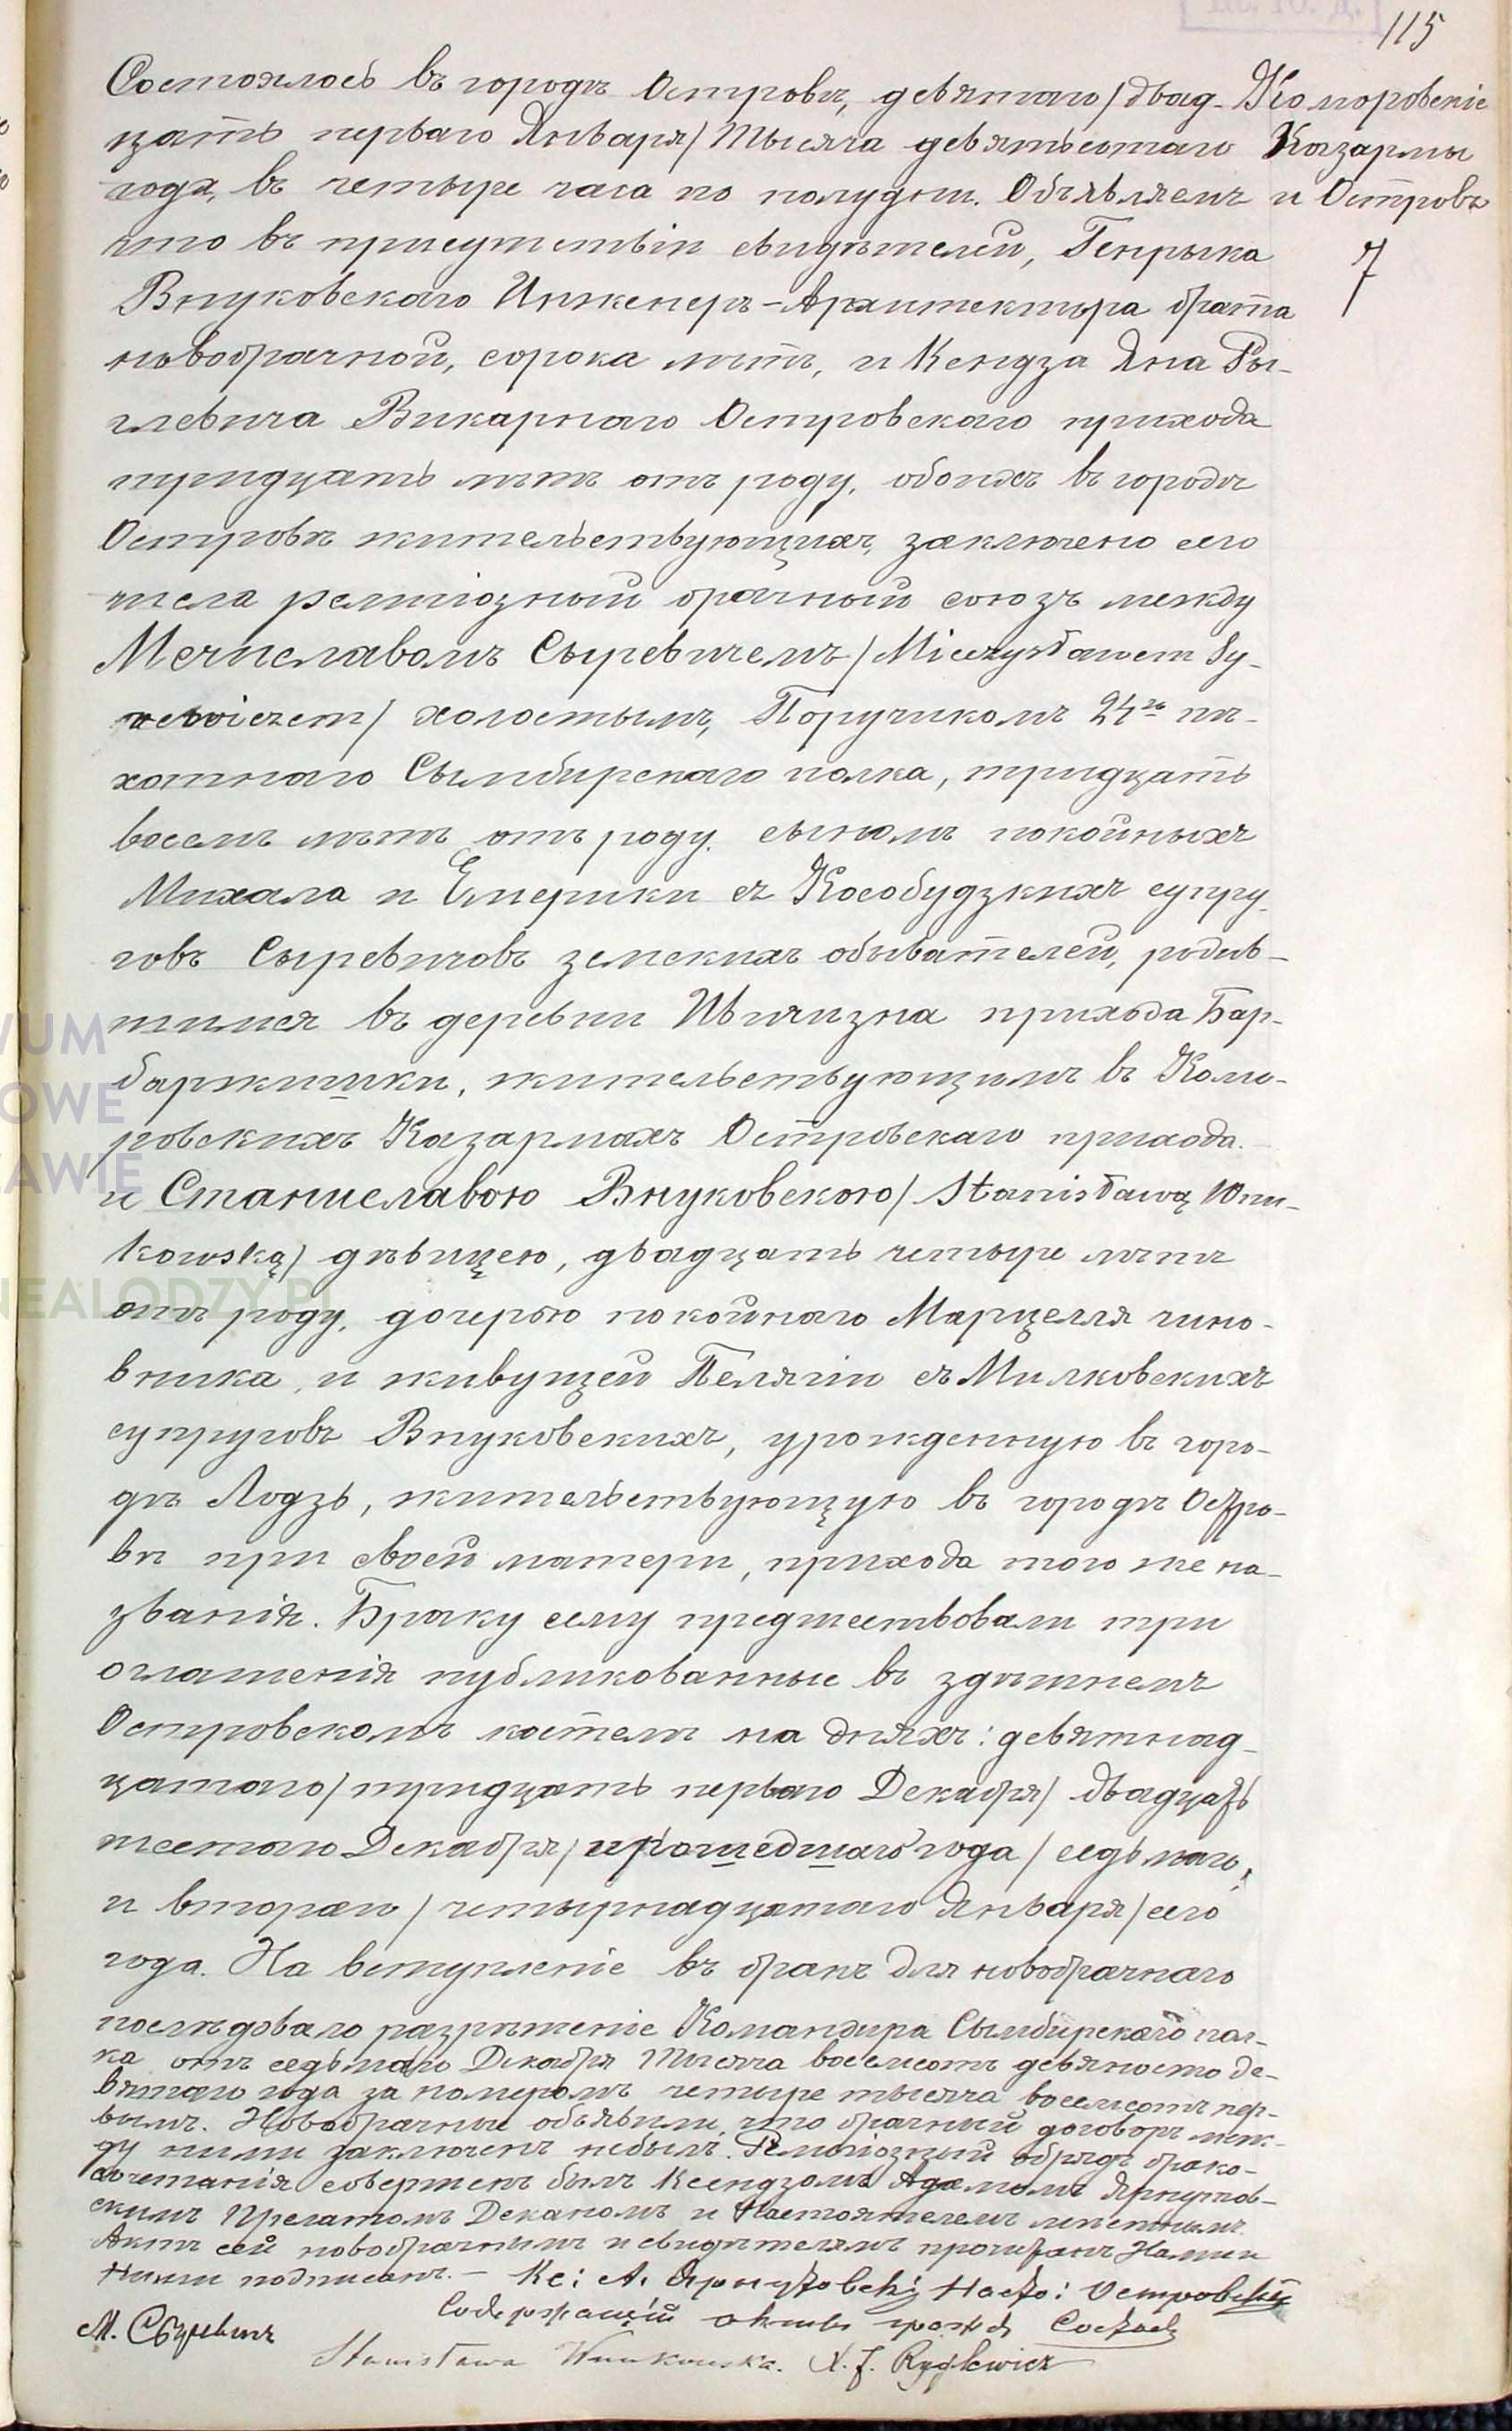 115
Коморовскіе
Казармы
и Островъ
7
Состоялось въ городѣ Островѣ, девятаго /двад-
цать перваго Января/ тысяча девятьсотаго
года, въ четыре часа по полудни. Объявляемъ
что въ присутствіи свидѣтелей, Генрыка
Внуковскаго Инженеръ-Архитектора брата
новобрачной, сорока лѣтъ, и Кендза Яна Ры-
глевича Викарнаго Островскаго прихода
тридцать лѣтъ отъ роду, обоихъ въ городѣ
Островѣ жительствующихъ, заключено сего
числа религіозный брачный союзъ между
Мечиславомъ Сыревичемъ /Mieczysławem Sy-
rewiczem/ холостымъ, Поручикомъ 24го пѣ-
хотнаго Сымбирскаго полка, тридцать
восемъ лѣтъ отъ роду, сыномъ покойныхъ
Михала и Емерики съ Кособудзкихъ супру-
говъ Сыревичовъ земскихъ обывателей, родив-
шимся въ деревни Ивичизна прихода Бар-
баржишки, жительствующимъ въ Комо-
ровскихъ Казармахъ Островскаго прихода
и Станиславою Внуковскою /Stanisławą Wnu-
kowską/ дѣвицею, двадцать четыре лѣтъ
отъ роду, дочерью покойнаго Марцелля чино-
вника, и живущей Пелягіи съ Милковскихъ
супруговъ Внуковскихъ, урожденную въ горо-
дѣ Лодзь, жительствующую въ городѣ Остро-
вѣ при своей матери, прихода того же на-
званія. Браку сему предшествовали три
оглашенія публикованные въ здѣшнемъ
Островскомъ костелѣ на дняхъ: девятнад-
цатаго /тридцать перваго Декабря/ двадцать
шестаго Декабря, прошедшаго года /седьмаго,
и втораго /четырнадцатаго Января/ сего
года. На вступленіе въ бракъ для новобрачнаго
послѣдовало разрѣшеніе Командира Сымбирскаго пол-
ка отъ седьмаго Декабря тысяча восемсотъ девяносто де-
вятаго года за номеромъ четыре тысяча восемсотъ пер-
вымъ. Новобрачные объявили, что брачный договоръ меж-
ду ними заключенъ небылъ. Религіозный обрядъ брако-
сочетанія совершенъ былъ Ксендзомъ Адамомъ Ярнутов-
скимъ Прелатомъ Деканомъ и Настоятелемъ мѣстнымъ.
Актъ сей новобрачнымъ и свидѣтелямъ прочитанъ Нами и
Ними подписанъ. — Кс: А. Ярнутовскій Насто: Островскій
Содержащій акты гражд Состоя
М. Сыревичъ
Stanisława Wnukowska. X. J. Ryglewicz